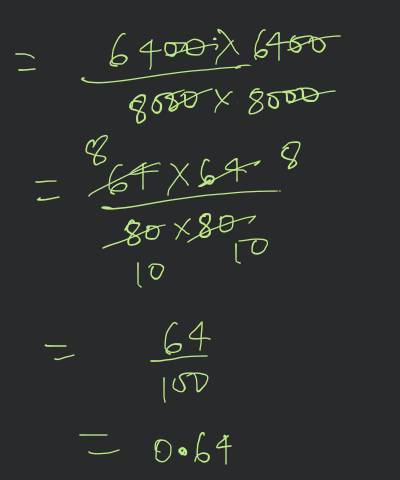 = 6400 × 6400
8000 × 8000
8 8
= 64 × 64
80 × 80
10 10
= 64
100
= 0.64